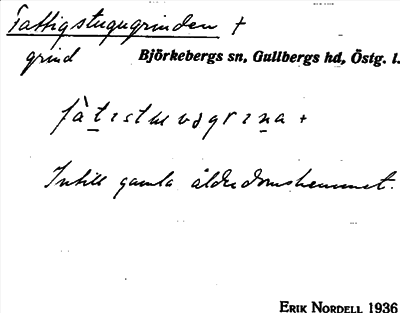 Fattigstugugrinden +
grind
Björkebergs sn, Gullbergs hd, Östg. l.
Intill gamla ålderdomshemmet.
ERIK NORDELL 1936